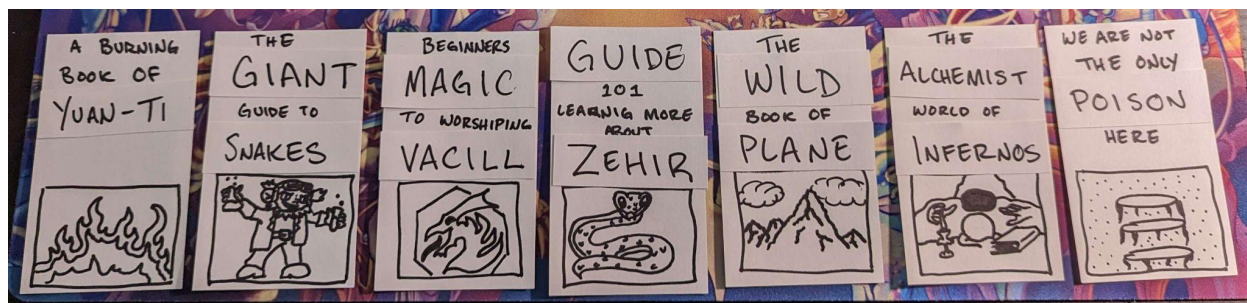 A BURNING
BOOK OF
YUAN-TI
THE
GIANT
GUIDE TO
SNAKES
BEGINNERS
MAGIC
TO WORSHIPING
VACILL
GUIDE
101
LEARNIG MORE
ABOUT
ZEHIR
THE
WILD
BOOK OF
PLANE
THE
ALCHEMIST
WORLD OF
INFERNOS
WE ARE NOT
THE ONLY
POISON
HERE